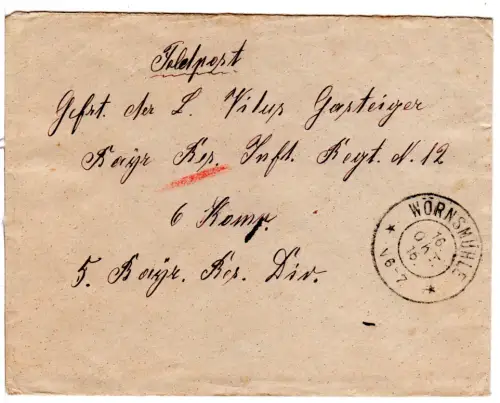 Feldpost
Gefrt. der L. Vitus Gasteiger
Bayr. Res. Inft. Regt. N. 12
6 Komp.
5. Bayr. Res. Div.
WÖRNSMÜHLE
16.
OKT.
16.
V 6-7